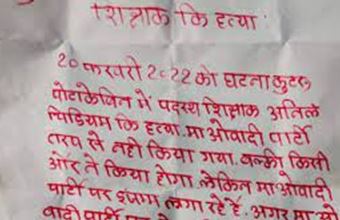 शिक्षक कि हत्या
20 फरवरी 2022 को घटना कुटरू
पोटाकेबिन में पदस्थ शिक्षक
मिडियम कि हत्या. माओवादी पार्टी
तरप से नही किया गया. बल्की किसी
और ने किया होगा. लेकिन माओवादी
पार्टी पर इल्जाम लगा रहे है. अगर माओ
वादी पार्टी